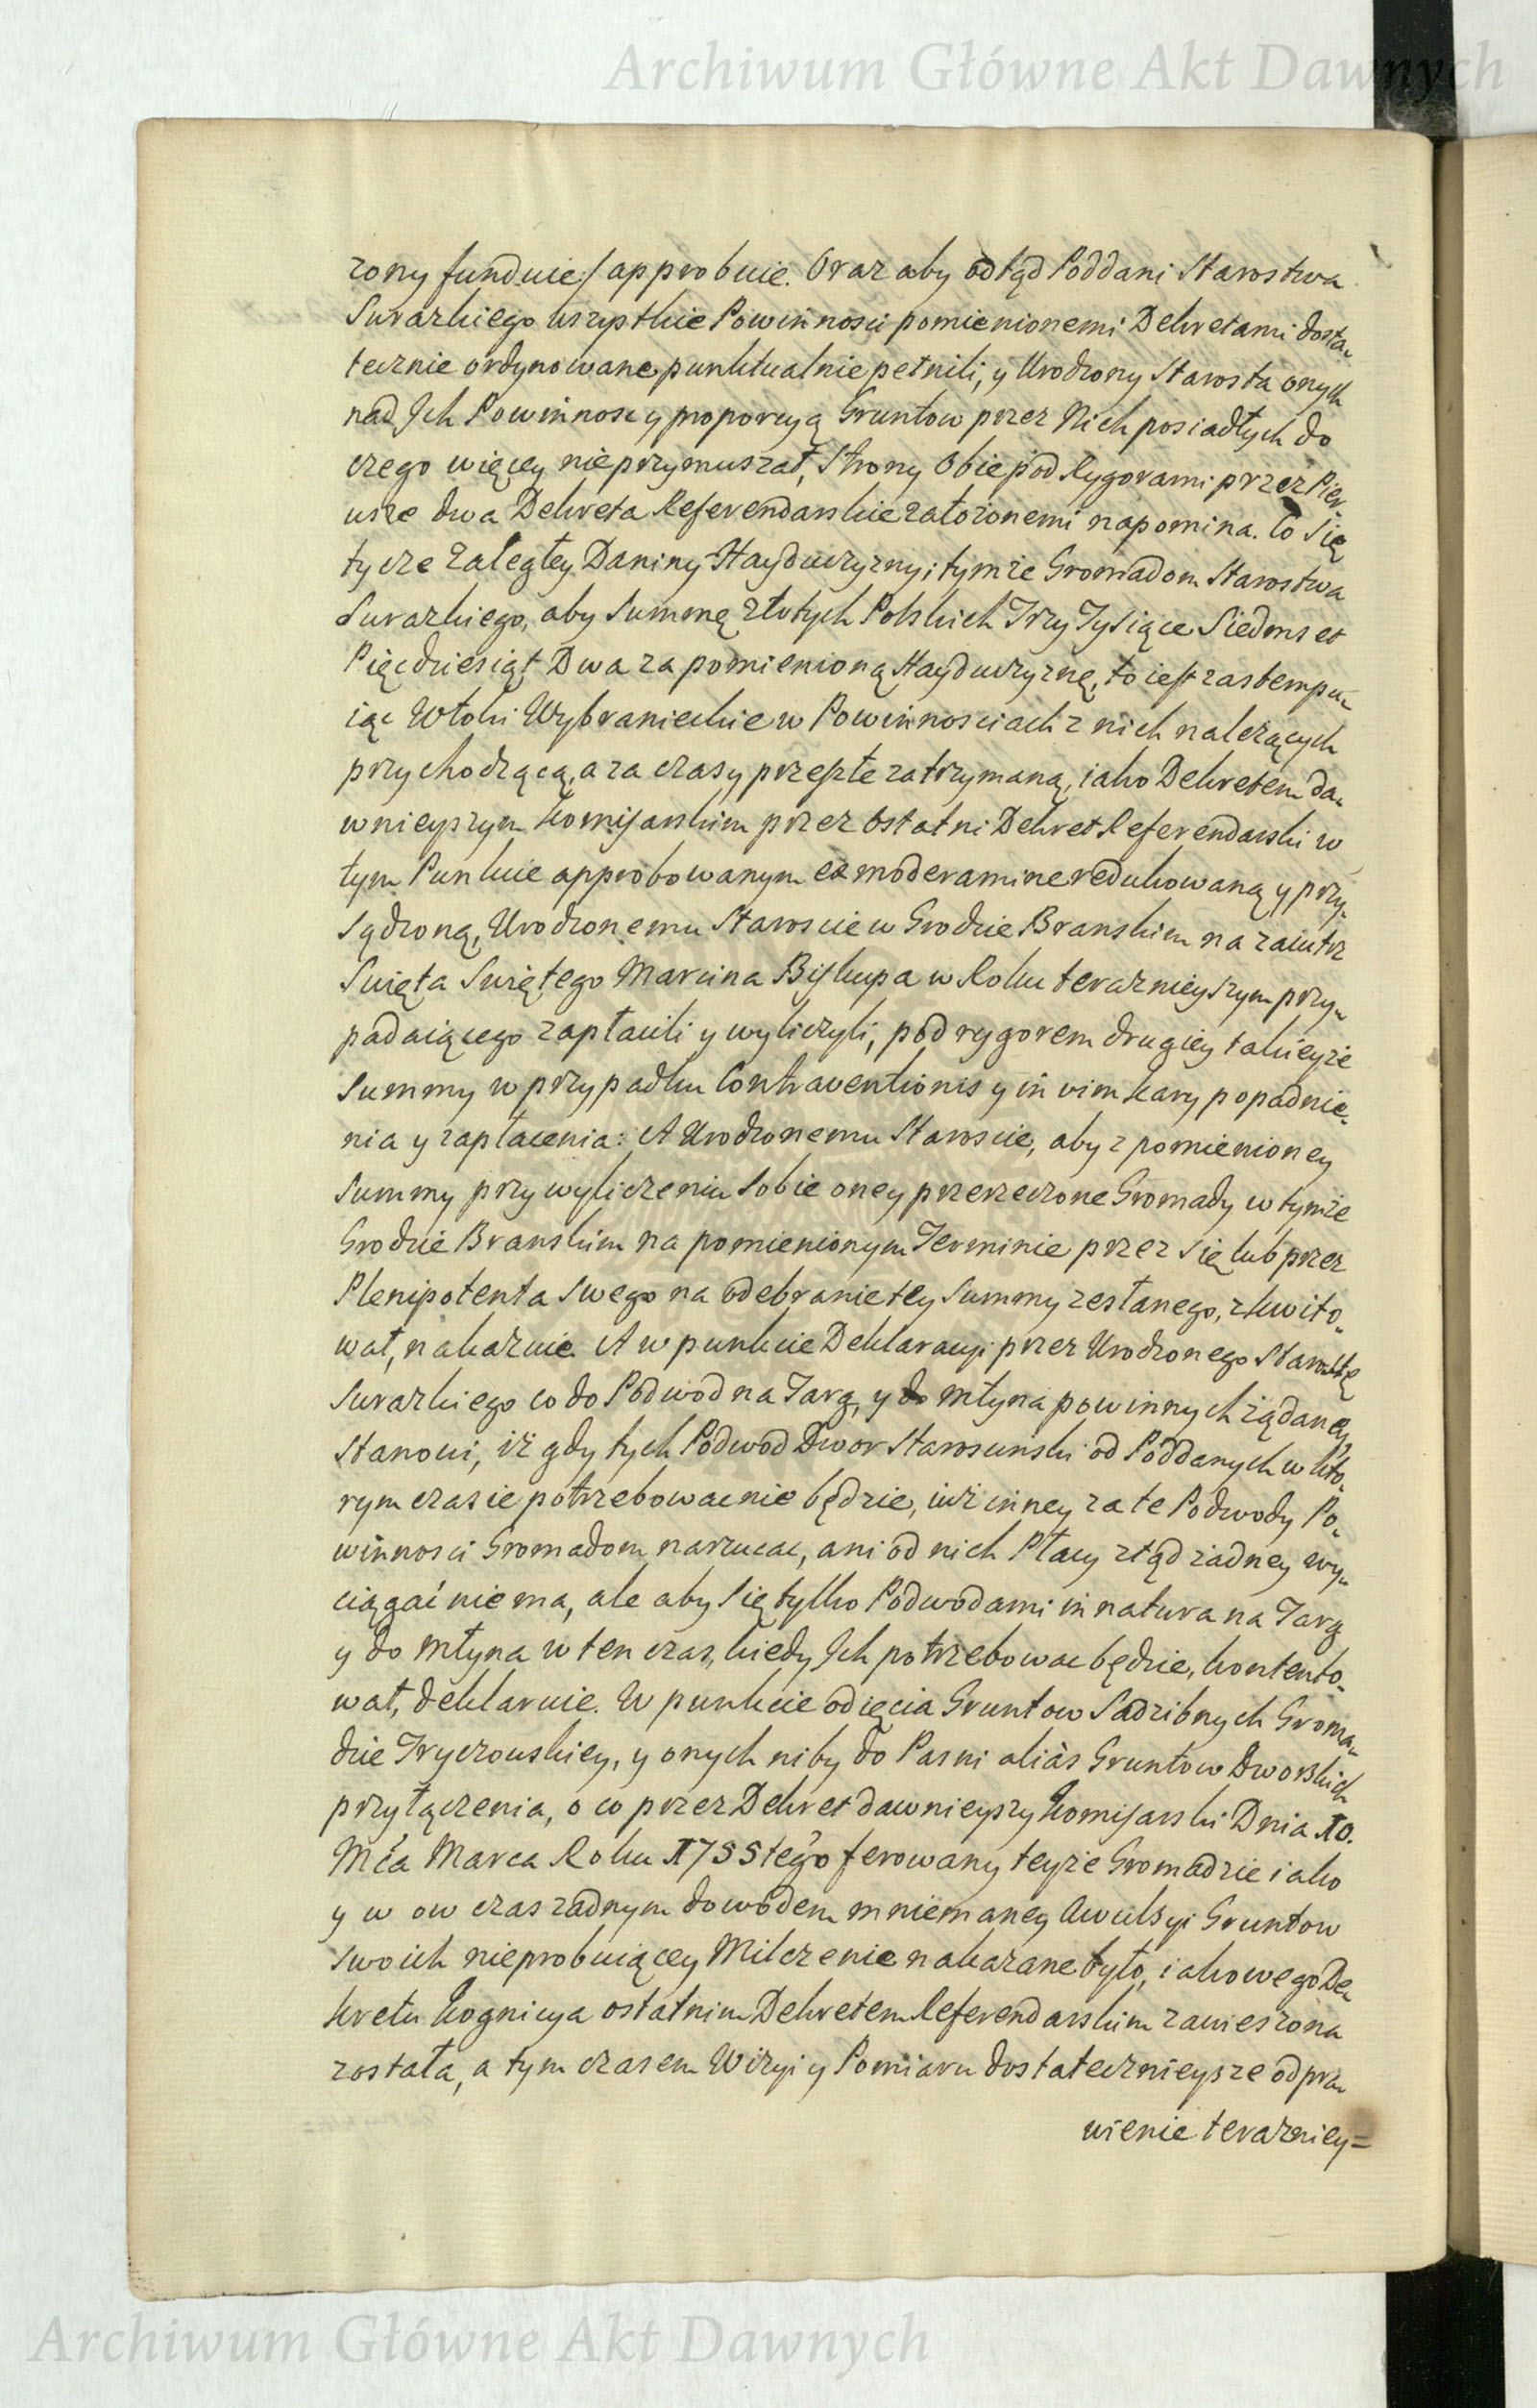 Archiwum Główne Akt Dawnych
rony funduie/ approbuie. Oraz aby odtąd Poddani Starostwa
Surazkiego wszystkie Powinnosci pomienionemi Dekretami dosta„
tecznie ordynowane punktualnie pełnili, y Urodzony Starosta onych
nad Jch Powinnosc y proporcyą Gruntow przez Nich posiadłych do
czego więcey nieprzymuszał, Strony Obie pod Rygorami przez Pier„
wsze dwa Dekreta Referendarskie założonemi napomina. Co się
tycze zaległey Daniny Hayduczyzny; tymże Gromadom Starostwa
Surazkiego, aby Summę złotych Polskich Trzy Tysiące Siedmset
Pięcdziesiąt Dwa za pomienioną Hayduczyznę, to iest zastempu„
iąc Włoki Wybranieckie w Powinnosciach z nich należących
przychodzącą, a za czasy przeszłe zatrzymaną, iako Dekretem da„
wnieyszym Komisarskim przez ostatni Dekret Referendarski w
tym Punkcie approbowanym ex moderamine redukowaną y przy„
sądzoną, Urodzonemu Staroscie w Grodzie Branskim na zaiutrz
Swięta Swiętego Marcina Biskupa w Roku teraznieyszym przy„
padaiącego zapłacili y wyliczyli, pod rygorem drugiey takieyże
Summy w przypadku Contraventionis y in vim kary popadnie„
nia y zapłacenia: A Urodzonemu Staroscie, aby z pomienioney
Summy przy wyliczeniu Sobie oney przerzeczone Gromady w tymże
Grodzie Branskim na pomienionym Terminie przez się lub przez
Plenipotenta Swego na odebranie tey Summy zesłanego, zkwito„
wał, nakazuie. A w punkcie Deklaracyi przez Urodzonego Starostę
Surazkiego co do Podwod na Targ, y do młyna powinnych żądaney
Stanowi, iż gdy tych Podwod Dwor Starosciński od Poddanych w kto„
rym czasie potrzebowac nie będzie, iuż inney za te Podwody Po„
winnosci Gromadom narzucac, ani od nich Płacy ztąd żadney wy„
ciągać nie ma, ale aby się tylko Podwodami in natura na Targ
y do Młyna w ten czas, kiedy Jch potrzebowac będzie, kontento„
wał, deklaruie. W punkcie odięcia Gruntow Sadzibnych Groma„
dzie Tryczowskiey, y onych niby do Pasni aliàs Gruntow Dworskich
przyłączenia, o co przez Dekret dawnieyszy Komisarski Dnia 10.
Mca Marca Roku 1755tego ferowany teyże Gromadzie iako
y w ow czas żadnym dowodem mniemaney Awulsyi Gruntow
swoich nieprobuiącey Milczenie nakazane było, iakowego De„
kretu Kognicya ostatnim Dekretem Referendarskim zawieszona
została, a tym czasem Wizyi y Pomiaru dostatecznieysze odpra„
wienie teraźniey=
Archiwum Główne Akt Dawnych